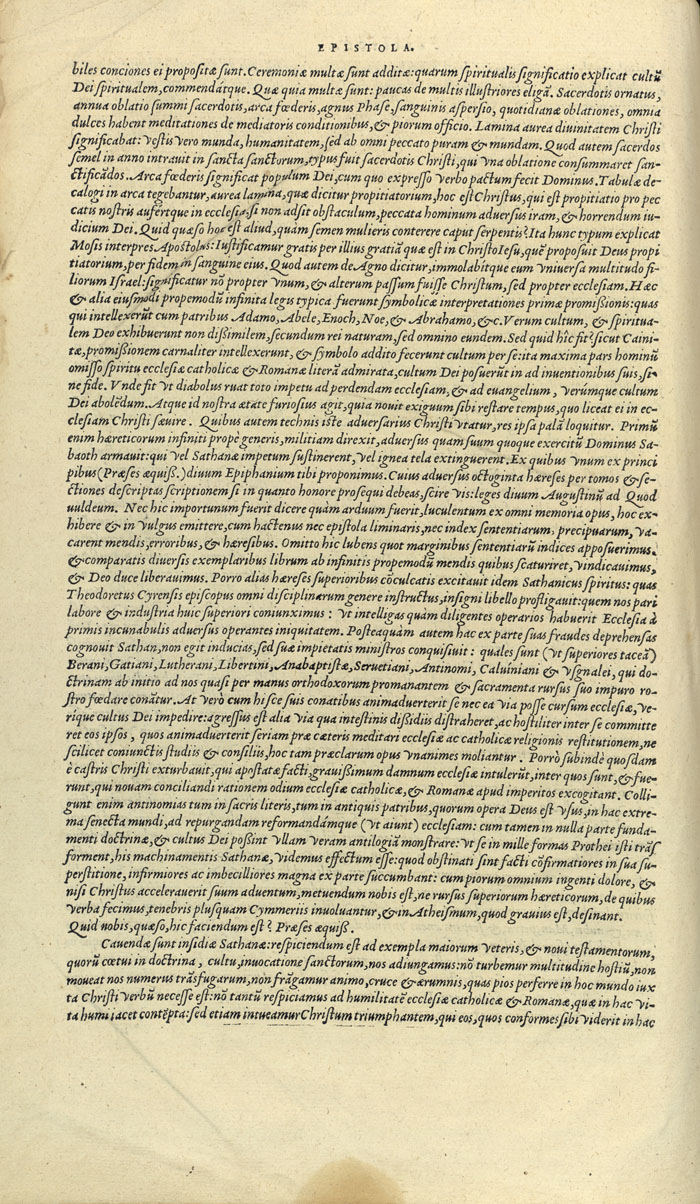 EPISTOLA.
biles conciones ei propositæ sunt. Ceremoniæ multæ sunt additæ: quarum spiritualis significatio explicat cultũ
Dei spiritualem, commendátque. Quæ quia multæ sunt: paucas de multis illustriores eligã. Sacerdotis ornatus,
annua oblatio summi sacerdotis, arca fœderis, agnus Phase, sanguinis aspersio, quotidianæ oblationes, omnia
dulces habent meditationes de mediatoris conditionibus, & piorum officio. Lamina aurea diuinitatem Christi
significabat: vestis vero munda, humanitatem, sed ab omni peccato puram & mundam. Quod autem sacerdos
semel in anno intrauit in sancta sanctorum, typus fuit sacerdotis Christi, qui vna oblatione consummaret san-
ctificados. Arca fœderis significat populum Dei, cum quo expresso verbo pactum fecit Dominus. Tabulæ de-
calogi in arca tegebantur, aurea lamina, quæ dicitur propitiatorium, hoc est Christus, qui est propitiatio pro pec
catis nostris aufertque in ecclesia, si non adsit obstaculum, peccata hominum aduersus iram, & horrendum iu-
dicium Dei. Quid quæso hoc est aliud, quàm semen mulieris conterere caput serpentis? Ita hunc typum explicat
Mosis interpres Apostolus: Iustificamur gratis per illius gratiã quæ est in Christo Iesu, quẽ proposuit Deus propi
tiatorium, per fidem in sanguine eius. Quod autem de Agno dicitur, immolabitque eum vniuersa multitudo fi-
liorum Israel: significatur nõ propter vnum, & alterum passum fuisse Christum, sed propter ecclesiam. Hæc
& alia eiusmodi propemodũ infinita legis typica fuerunt symbolicæ interpretationes primæ promissionis: quas
qui intellexerũt cum patribus Adamo, Abele, Enoch, Noe, & Abrahamo, &c. Verum cultum, & spiritua-
lem Deo exhibuerunt non dissimilem, secundum rei naturam, sed omnino eundem. Sed quid hic fit? sicut Caini-
tæ, promissionem carnaliter intellexerunt, & symbolo addito fecerunt cultum per se: ita maxima pars hominũ
omisso spiritu ecclesiæ catholicæ & Romanæ literã admirata, cultum Dei posuerũt in ad inuentionibus suis, si-
ne fide. Vnde fit vt diabolus ruat toto impetu ad perdendam ecclesiam, & ad euangelium, verúmque cultum
Dei abolẽdum. Atque id nostra ætate furiosius agit, quia nouit exiguum sibi restare tempus, quo liceat ei in ec-
clesiam Christi sæuire. Quibus autem technis iste aduersarius Christi vtatur, res ipsa palã loquitur. Primũ
enim hæreticorum infiniti propè generis, militiam direxit, aduersus quam suum quoque exercitũ Dominus Sa-
baoth armauit: qui vel Sathanæ impetum sustinerent, vel ignea tela extinguerent. Ex quibus vnum ex princi
pibus (Præses æquiss.) diuum Epiphanium tibi proponimus. Cuius aduersus octoginta hæreses per tomos & se-
ctiones descriptas scriptionem si in quanto honore prosequi debeas, scire vis: leges diuum Augustinũ ad Quod
uuldeum. Nec hic importunum fuerit dicere quàm arduum fuerit, luculentum ex omni memoria opus, hoc ex-
hibere & in vulgus emittere, cum hactenus nec epistola liminaris, nec index sententiarum, præcipuarum, va-
carent mendis, erroribus, & hæresibus. Omitto hic lubens quot marginibus sententiarũ indices apposuerimus,
& comparatis diuersis exemplaribus librum ab infinitis propemodũ mendis quibus scaturiret, vindicauimus,
& Deo duce liberauimus. Porro alias hæreses superioribus cõculcatis excitauit idem Sathanicus spiritus: quas
Theodoretus Cyrensis episcopus omni disciplinarum genere instructus, insigni libello profligauit: quem nos pari
labore & industria huic superiori coniunximus: vt intelligas quàm diligentes operarios habuerit Ecclesia à
primis incunabulis aduersus operantes iniquitatem. Posteaquàm autem hac ex parte suas fraudes deprehensas
cognouit Sathan, non egit inducias, sed suæ impietatis ministros conquisiuit: quales sunt (vt superiores taceã)
Berani, Gatiani, Lutherani, Libertini, Anabaptistæ, Seruetiani, Antinomi, Caluiniani & vsgnalei, qui do-
ctrinam ab initio ad nos quasi per manus orthodoxorum promanantem & sacramenta rursus suo impuro ro-
stro fœdare conãtur. At verò cum hisce suis conatibus animaduerterit se nec ea via posse cursum ecclesiæ, ve-
rique cultus Dei impedire: agressus est alia via qua intestinis dissidiis distraheret, ac hostiliter inter se committe
ret eos ipsos, quos animaduerterit seriam præ cæteris meditari ecclesiæ ac catholicæ religionis restitutionem, ne
scilicet coniunctis studiis & consiliis, hoc tam præclarum opus vnanimes moliantur. Porrò subinde quosdam
è castris Christi exturbauit, qui apostatæ facti, grauissimum damnum ecclesiæ intulerũt, inter quos sunt, & fue-
runt, qui nouam conciliandi rationem odium ecclesiæ catholicæ, & Romanæ apud imperitos excogitant. Colli-
gunt enim antinomias tum in sacris literis, tum in antiquis patribus, quorum opera Deus est vsus, in hac extre-
ma senecta mundi, ad repurgandam reformandámque (vt aiunt) ecclesiam: cum tamen in nulla parte funda-
menti doctrinæ, & cultus Dei possint vllam veram antilogiã monstrare: vt se in mille formas Prothei isti trãs
forment, his machinamentis Sathanæ, videmus effectum esse: quod obstinati sint facti cõfirmatiores in sua su-
perstitione, infirmiores ac imbecilliores magna ex parte succumbant: cum piorum omnium ingenti dolore, &
nisi Christus accelerauerit suum aduentum, metuendum nobis est, ne rursus superiorum hæreticorum, de quibus
verba fecimus, tenebris plusquam Cymmeriis inuoluantur, & in Atheismum, quod grauius est, desinant.
Quid nobis, quæso, hic faciendum est? Præses æquiss.
Cauendæ sunt insidiæ Sathanæ: respiciendum est ad exempla maiorum veteris, & noui testamentorum,
quorũ cœtui in doctrina, cultu, inuocatione sanctorum, nos adiungamus: nõ turbemur multitudine hostiũ, non
moueat nos numerus trãsfugarum, non frãgamur animo, cruce & ærumnis, quas pios perferre in hoc mundo iux
ta Christi verbũ necesse est: nõ tantũ respiciamus ad humilitatẽ ecclesiæ catholicæ & Romanæ, quæ in hac vi-
ta humi iacet contẽpta: sed etiam intueamur Christum triumphantem, qui eos, quos conformes sibi viderit in hac